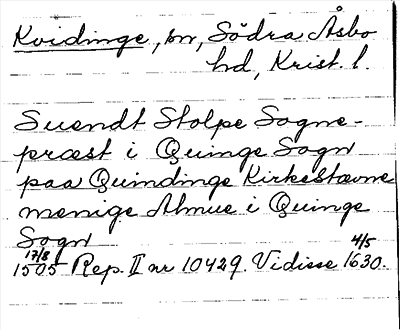 Kvidinge, sn, Södra Åsbo
hd, Krist. l.
Suendt Stolpe Sogne-
præst i Quinge Sogn
paa Quindinge Kirkestævne
menige Almue i Quinge
Sogn
17/8 4/5
1505 Rep. II nr 10429. Vidisse 1630.